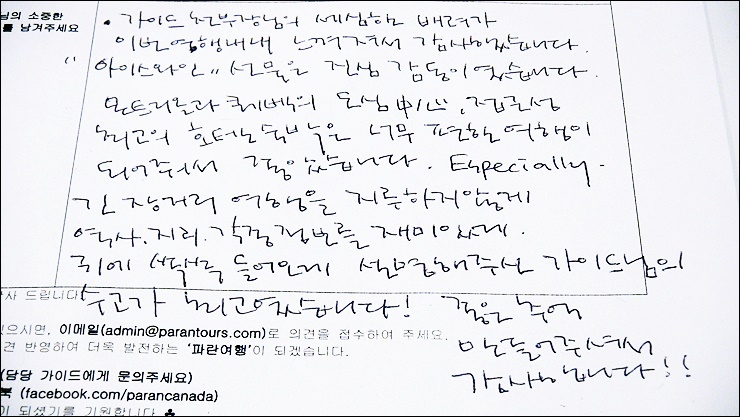 님의 소중한
를 남겨주세요
· 가이드 천부장님의 세심한 배려가
이번 여행내내 느껴져서 감사했습니다.
"아이스와인" 선물은 진심 감동이였습니다.
몬트리올과 퀘벡의 도심中心, 접근성
최고의 호텔 숙박은 너무 편한 여행이
되어주어서 좋았습니다. Especially.
긴 장거리 여행을 지루하지않게
역사.지리.각종정보를 재미있게.
귀에 쏙쏙 들어오게 설명해주신 가이드님의
사 드립니다
수고가 최고였습니다! 좋은 추억
만들어주셔서
감사합니다!!
있으시면, 이메일(admin@parantours.com)로 의견을 접수하여 주세요.
견 반영하여 더욱 발전하는 '파란여행'이 되겠습니다.
(담당 가이드에게 문의주세요)
북 (facebook.com/parancanada)
이 되셨기를 기원합니다 ♣